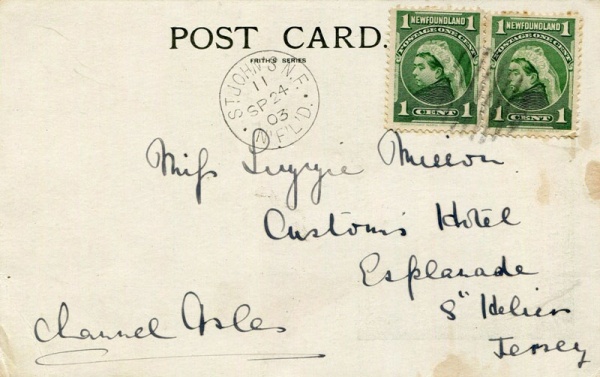 POST CARD.
FRITH'S SERIES
1 NEWFOUNDLAND 1
POSTAGE ONE CENT
1 CENT 1
1 NEWFOUNDLAND 1
POSTAGE ONE CENT
1 CENT 1
ST JOHN'S N.F.
11
SP 24
03
N'F'L'D.
Miss
Customs Hotel
Esplanade
St Heliers
Jersey
Channel Isles